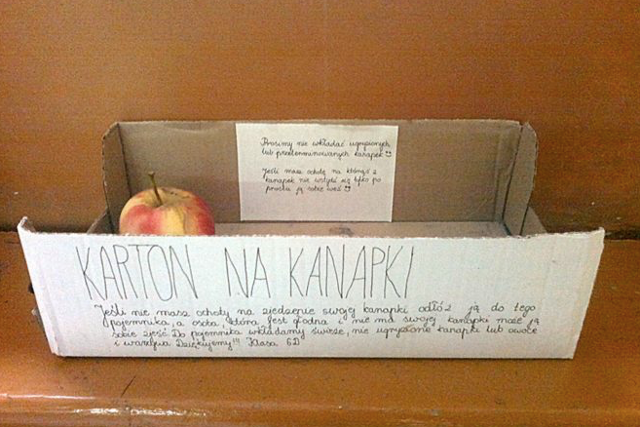 Prosimy nie wkładać ugryzionych
lub przeterminowanych kanapek
Jeśli masz ochotę na którąś z
kanapek nie wstydź się tylko po
prostu ją sobie weź
KARTON NA KANAPKI
Jeśli nie masz ochoty na zjedzenie swojej kanapki odłóż ją do tego
pojemnika, a osoba, która jest głodna i nie ma swojej kanapki może ją
sobie zjeść. Do pojemnika wkładamy świeże, nie ugryzione kanapki lub owoce
i warzywa Dziękujemy!!! Klasa 6D